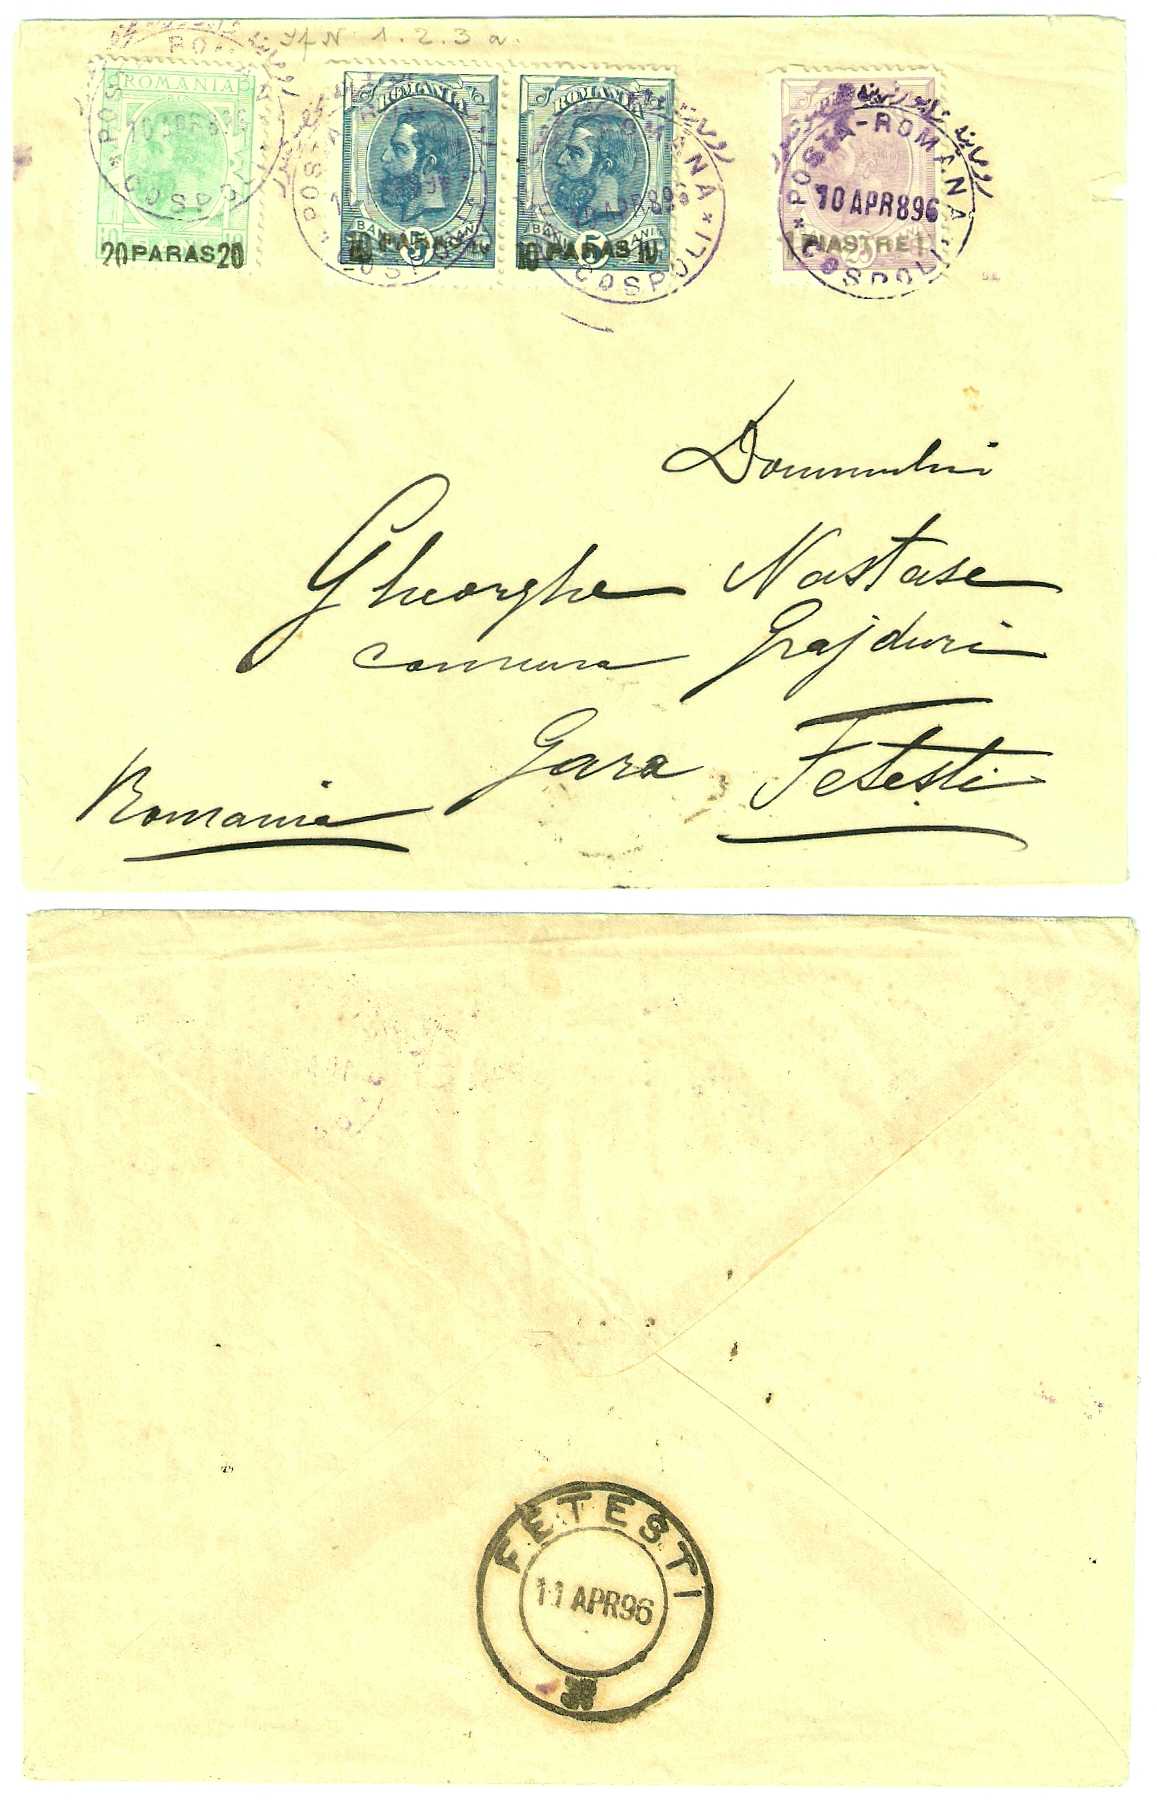 YfN 1. 2. 3 a.
ROMANIA
10 APR 896
COSPOLI
20 PARAS 20
ROMANIA
5
10 PARAS 10
ROMANIA
5
10 PARAS 10
10 APR 896
COSPOLI
POSTA-ROMANA
10 APR 896
COSPOLI
1 PIASTRE 1
25
Domnului
Gheorghe Nastase
comuna Grajduri
Gara Fetesti
Romania
FETESTI
11 APR 96